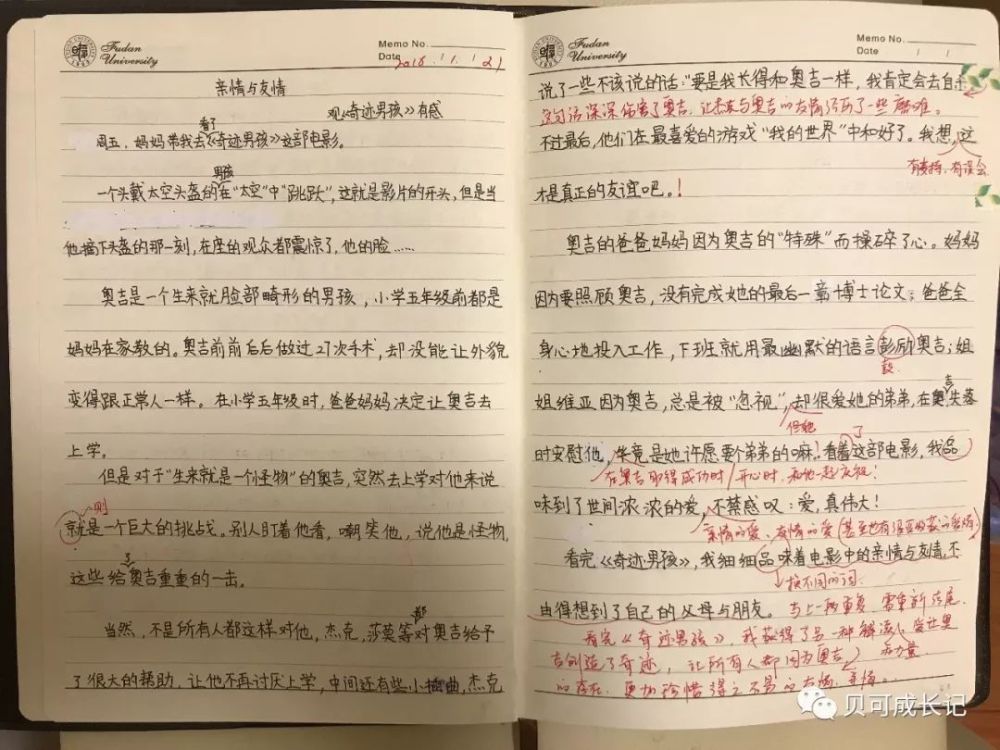 Fudan
University
Memo No.
Date 2018 / 1 / 21
亲情与友情
观《奇迹男孩》有感
看了
周五，妈妈带我去《奇迹男孩》这部电影。
男孩
一个头戴太空头盔的在“太空”中“跳跃”，这就是影片的开头，但是当
他摘下头盔的那一刻，在座的观众都震惊了，他的脸……
奥吉是一个生来就脸部畸形的男孩，小学五年级前都是
妈妈在家教的。奥吉前前后后做过27次手术，却没能让外貌
变得跟正常人一样。在小学五年级时，爸爸妈妈决定让奥吉去
上学。
但是对于“生来就是一个怪物”的奥吉，突然去上学对他来说
则
就是一个巨大的挑战。别人盯着他看，嘲笑他，说他是怪物，
了
这些给奥吉重重的一击。
都
当然，不是所有人都这样对他，杰克，莎莫等对奥吉给予
了很大的帮助，让他不再讨厌上学，中间还有些小插曲，杰克
Fudan
University
Memo No.
Date / /
说了一些不该说的话：“要是我长得和奥吉一样，我肯定会去自杀
这句话深深伤害了奥吉，让杰克与奥吉的友情经历了一些磨难。
不过最后，他们在最喜爱的游戏“我的世界”中和好了。我想，这
有支持，有误会
才是真正的友谊吧。！
奥吉的爸爸妈妈因为奥吉的“特殊”而操碎了心。妈妈
因为要照顾奥吉，没有完成她的最后一章博士论文；爸爸全
身心地投入工作，下班就用最幽默的语言彭励奥吉；姐
鼓
吉
姐维亚因为奥吉，总是被“忽视”，却很爱她的弟弟，在奥失落
但她
了
时安慰他，毕竟是她许愿要个弟弟的嘛！看着这部电影，我品
在奥吉取得成功时/开心时，和他一起庆祝！
味到了世间浓浓的爱，不禁感叹：爱，真伟大！
亲情的爱、友情的爱
看完《奇迹男孩》，我细细品味着电影中的亲情与友情，不
换不同的词
由得想到了自己的父母与朋友。
与上一段重复，需重新结尾
看完《奇迹男孩》，我获得了另一种解读，爱让奥
吉创造了奇迹，让所有人都因为奥吉
的力量
的存在，更加珍惜得之不易的友情、亲情。
贝可成长记